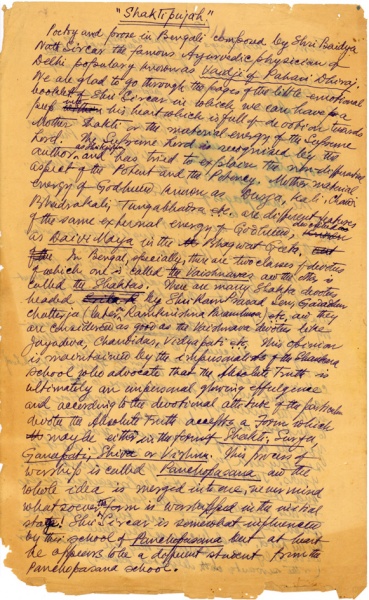 "Shaktipujah."
Poetry and prose in Bengali composed by Shri Baidya
Nath Sircar the famous Ayurvedic physician of
Delhi popularly known as Vaidji of Pahari Dhiraj.
We are glad to go through the pages of the little emotional
booklet of Shri Sircar in which we can have a
peep his heart which is full of devotion towards
Mother Shakti or the material energy of the Supreme
Lord. The Supreme Lord is recognised by the
author and has tried to explain the non-different
aspect of the Potent and the Potency. Mother material
energy of Godhead known as Durga, Kali, Chandi
Bhadrakali, Tungabhadra etc. are different features
of the same external energy of Godhead,
as Daivi Maya in the Bhagwat Geeta.
In Bengal, specially, there are two classes of devotees
of which one is called the Vaishnavas and the other is
called the Shaktas. There are many Shakta devotees
headed by Shri Ram Prasad Sen, Gadadhar
Chatterjee (later on Ramkrishna Paramhansa) etc, and they
are considered as good as the Vaishnava devotees like
Jayadeva, Chandidas, Vidyapati etc. This opinion
is maintained by the impersonalists of the Shankara
school who advocate that the Absolute Truth is
ultimately an impersonal glowing effulgence
and according to the devotional attitude of the particular
devotee the Absolute Truth accepts a form which
may be either in the form of Shakti, Surya
Ganapati, Shiva or Vishnu. This process of
worship is called Panchopasana and the
whole idea is merged into one, never mind
what soever the form is worshipped in the initial
stage. Shri Sircar is somewhat influenced
by this school of Panchopasana but at heart
he appears to be a different student from the
Panchopasana school.